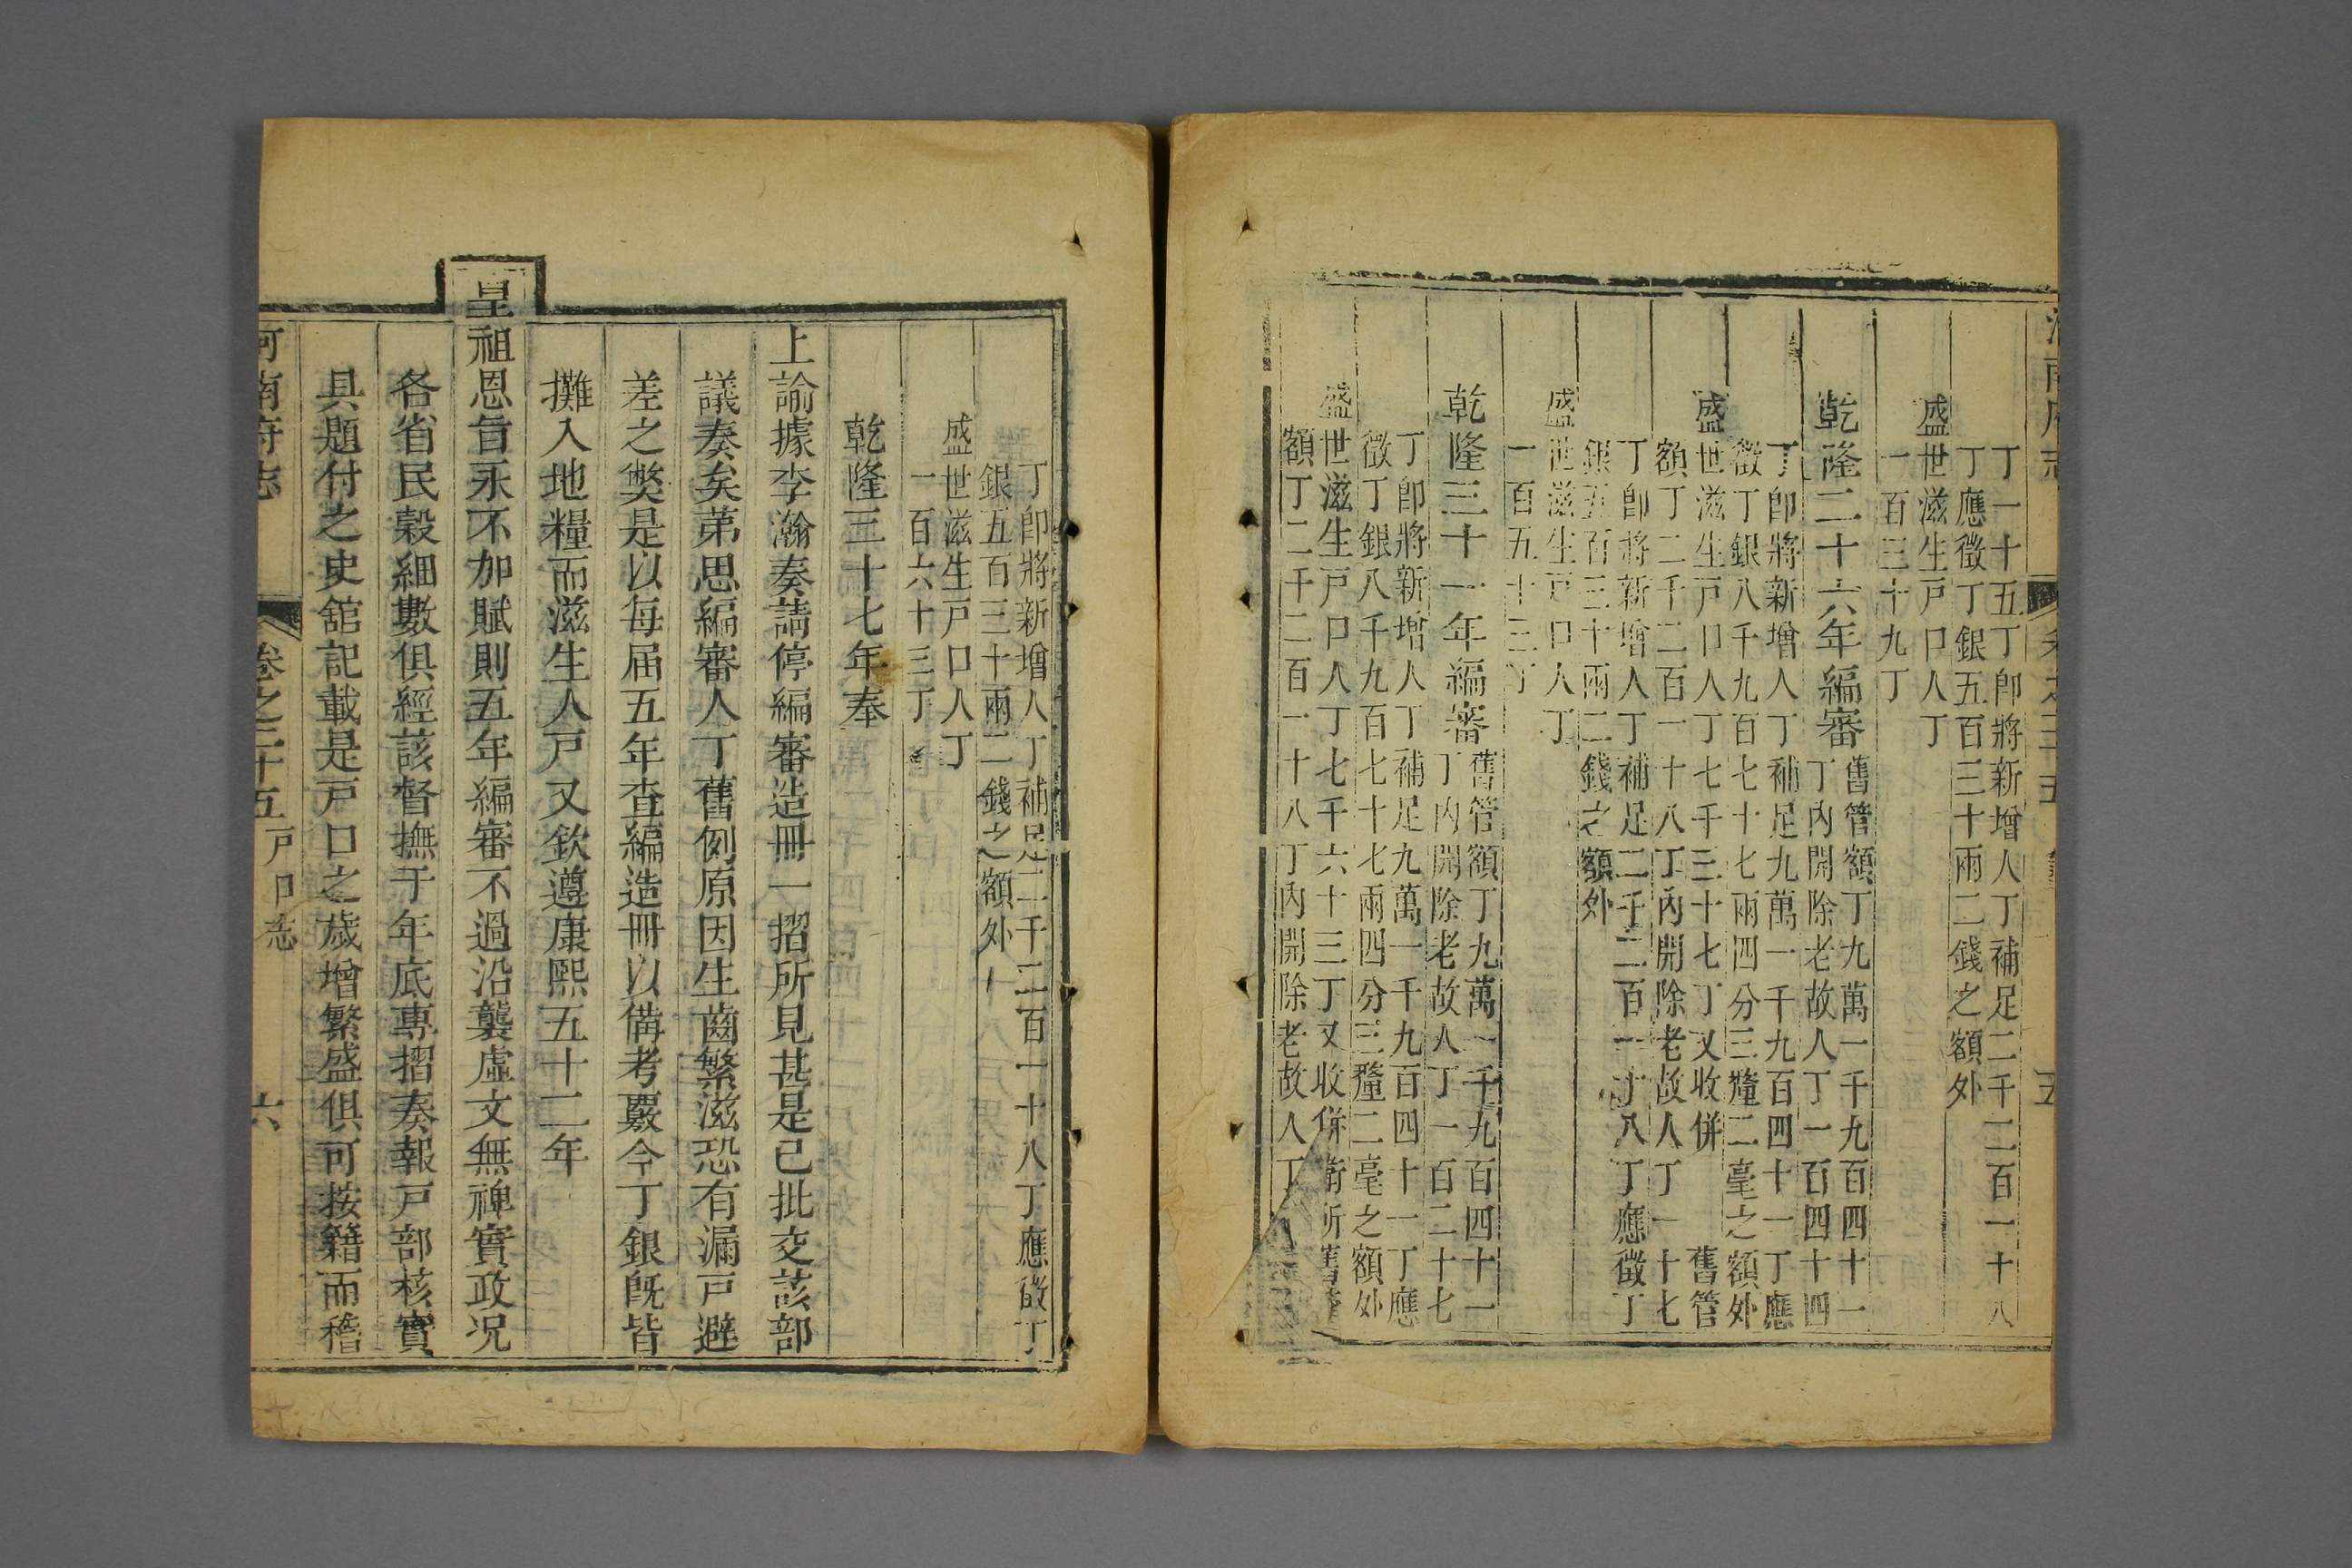 丁一十五丁卽將新增人丁補足二千二百一十八
丁應徵丁銀五百三十兩二錢之額外
盛世滋生戸口人丁
一百三十九丁
乾隆二十六年編審
舊管額丁九萬一千九百四十一
丁內開除老故人丁一百四十四
丁卽將新增人丁補足九萬一千九百四十一丁應
徵丁銀八千九百七十七兩四分三釐二毫之額外
盛世滋生戸口人丁七千三十七丁又收併
舊管
額丁二千二百一十八丁內開除老故人丁一十七
丁卽將新增人丁補足二千二百一十八丁應徵丁
銀五百三十兩二錢之額外
盛世滋生戸口人丁
一百五十三丁
乾隆三十一年編審
舊管額丁九萬一千九百四十一
丁內開除老故人丁一百二十七
丁卽將新增人丁補足九萬一千九百四十一丁應
徵丁銀八千九百七十七兩四分三釐二毫之額外
盛世滋生戸口人丁七千六十三丁又收併衛所舊管
額丁二千二百一十八丁內開除老故人丁
丁卽將新增人丁補足二千二百一十八丁應徵丁
銀五百三十兩二錢之額外
盛世滋生戸口人丁
一百六十三丁
乾隆三十七年奉
上諭據李瀚奏請停編審造冊一摺所見甚是已批交該部
議奏矣第思編審人丁舊例原因生齒繁滋恐有漏戸避
差之獘是以每届五年查編造冊以備考覈今丁銀旣皆
攤入地糧而滋生人戸又欽遵康熙五十二年
皇祖恩旨永不加賦則五年編審不過沿襲虛文無裨實政况
各省民穀細數俱經該督撫于年底專摺奏報戸部核實
具題付之史舘記載是戸口之歲增繁盛俱可按籍而稽
河南府志
卷之二十五
戸口志
六